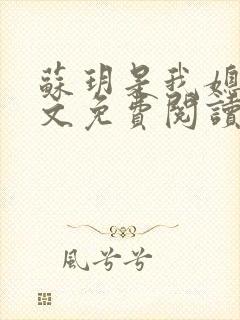 蘇玥是我媳
文免費閱讀
風兮兮